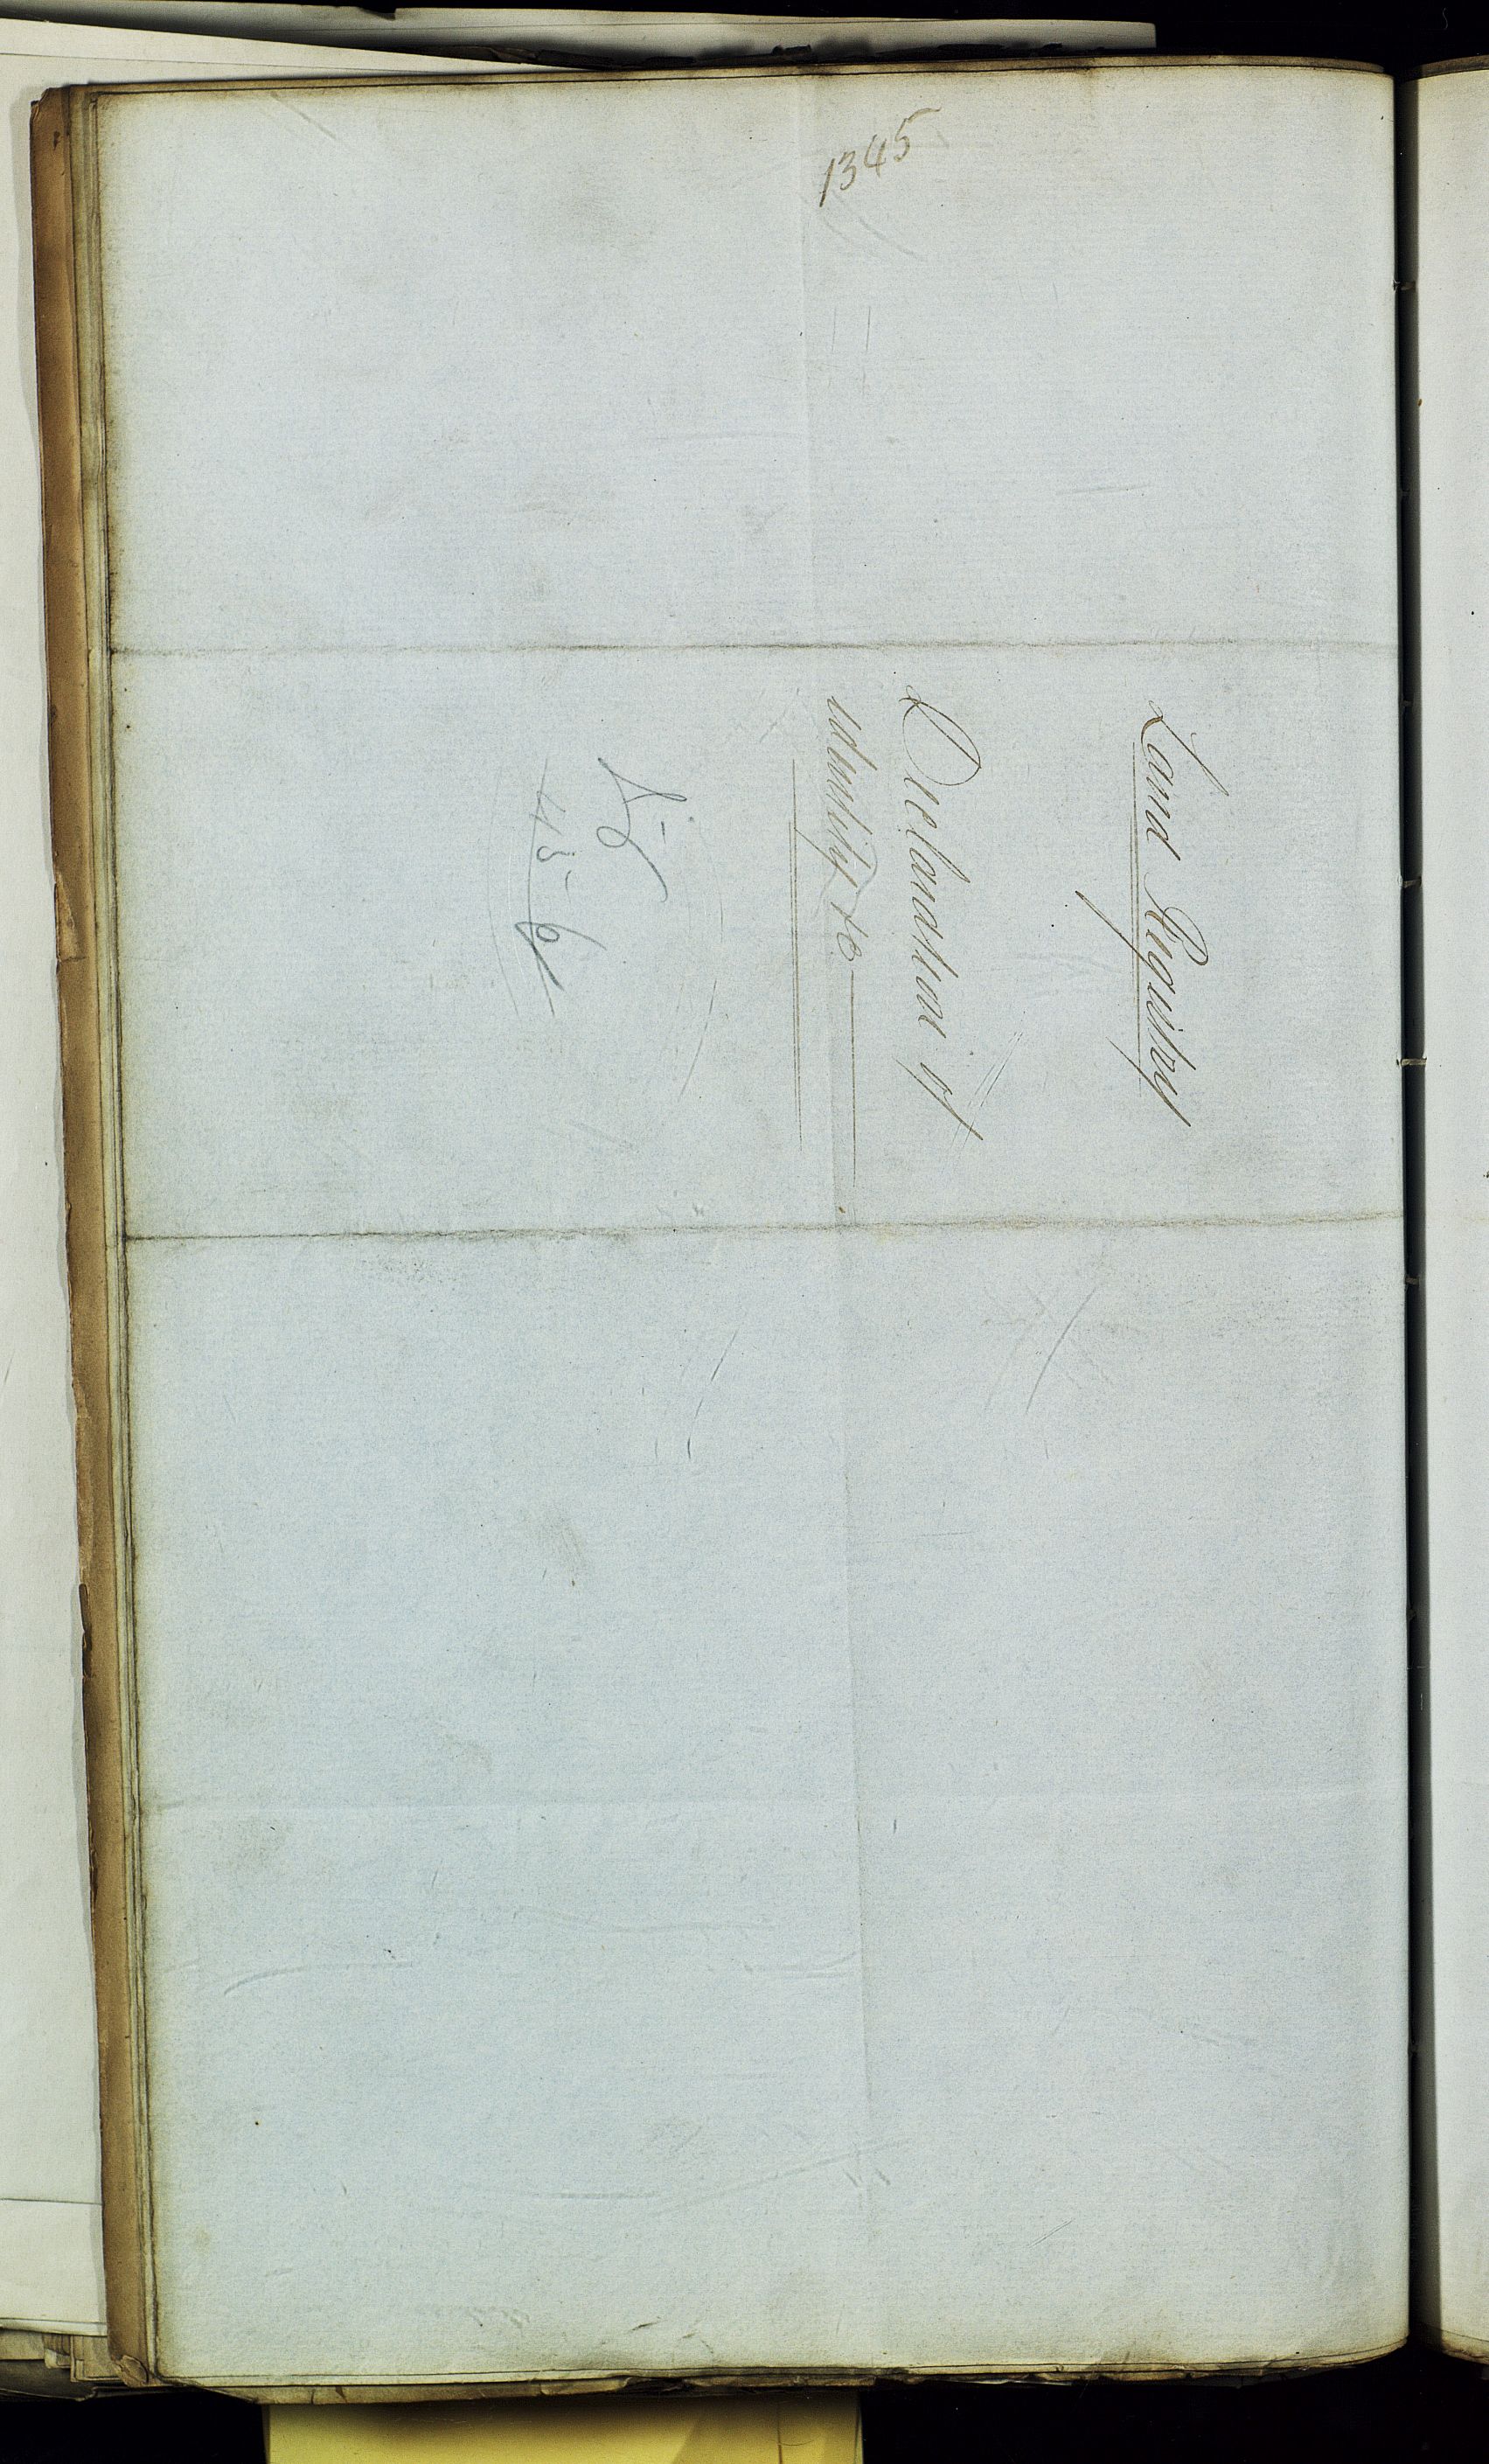 1345
Land Registry
Declaration of
identity &c